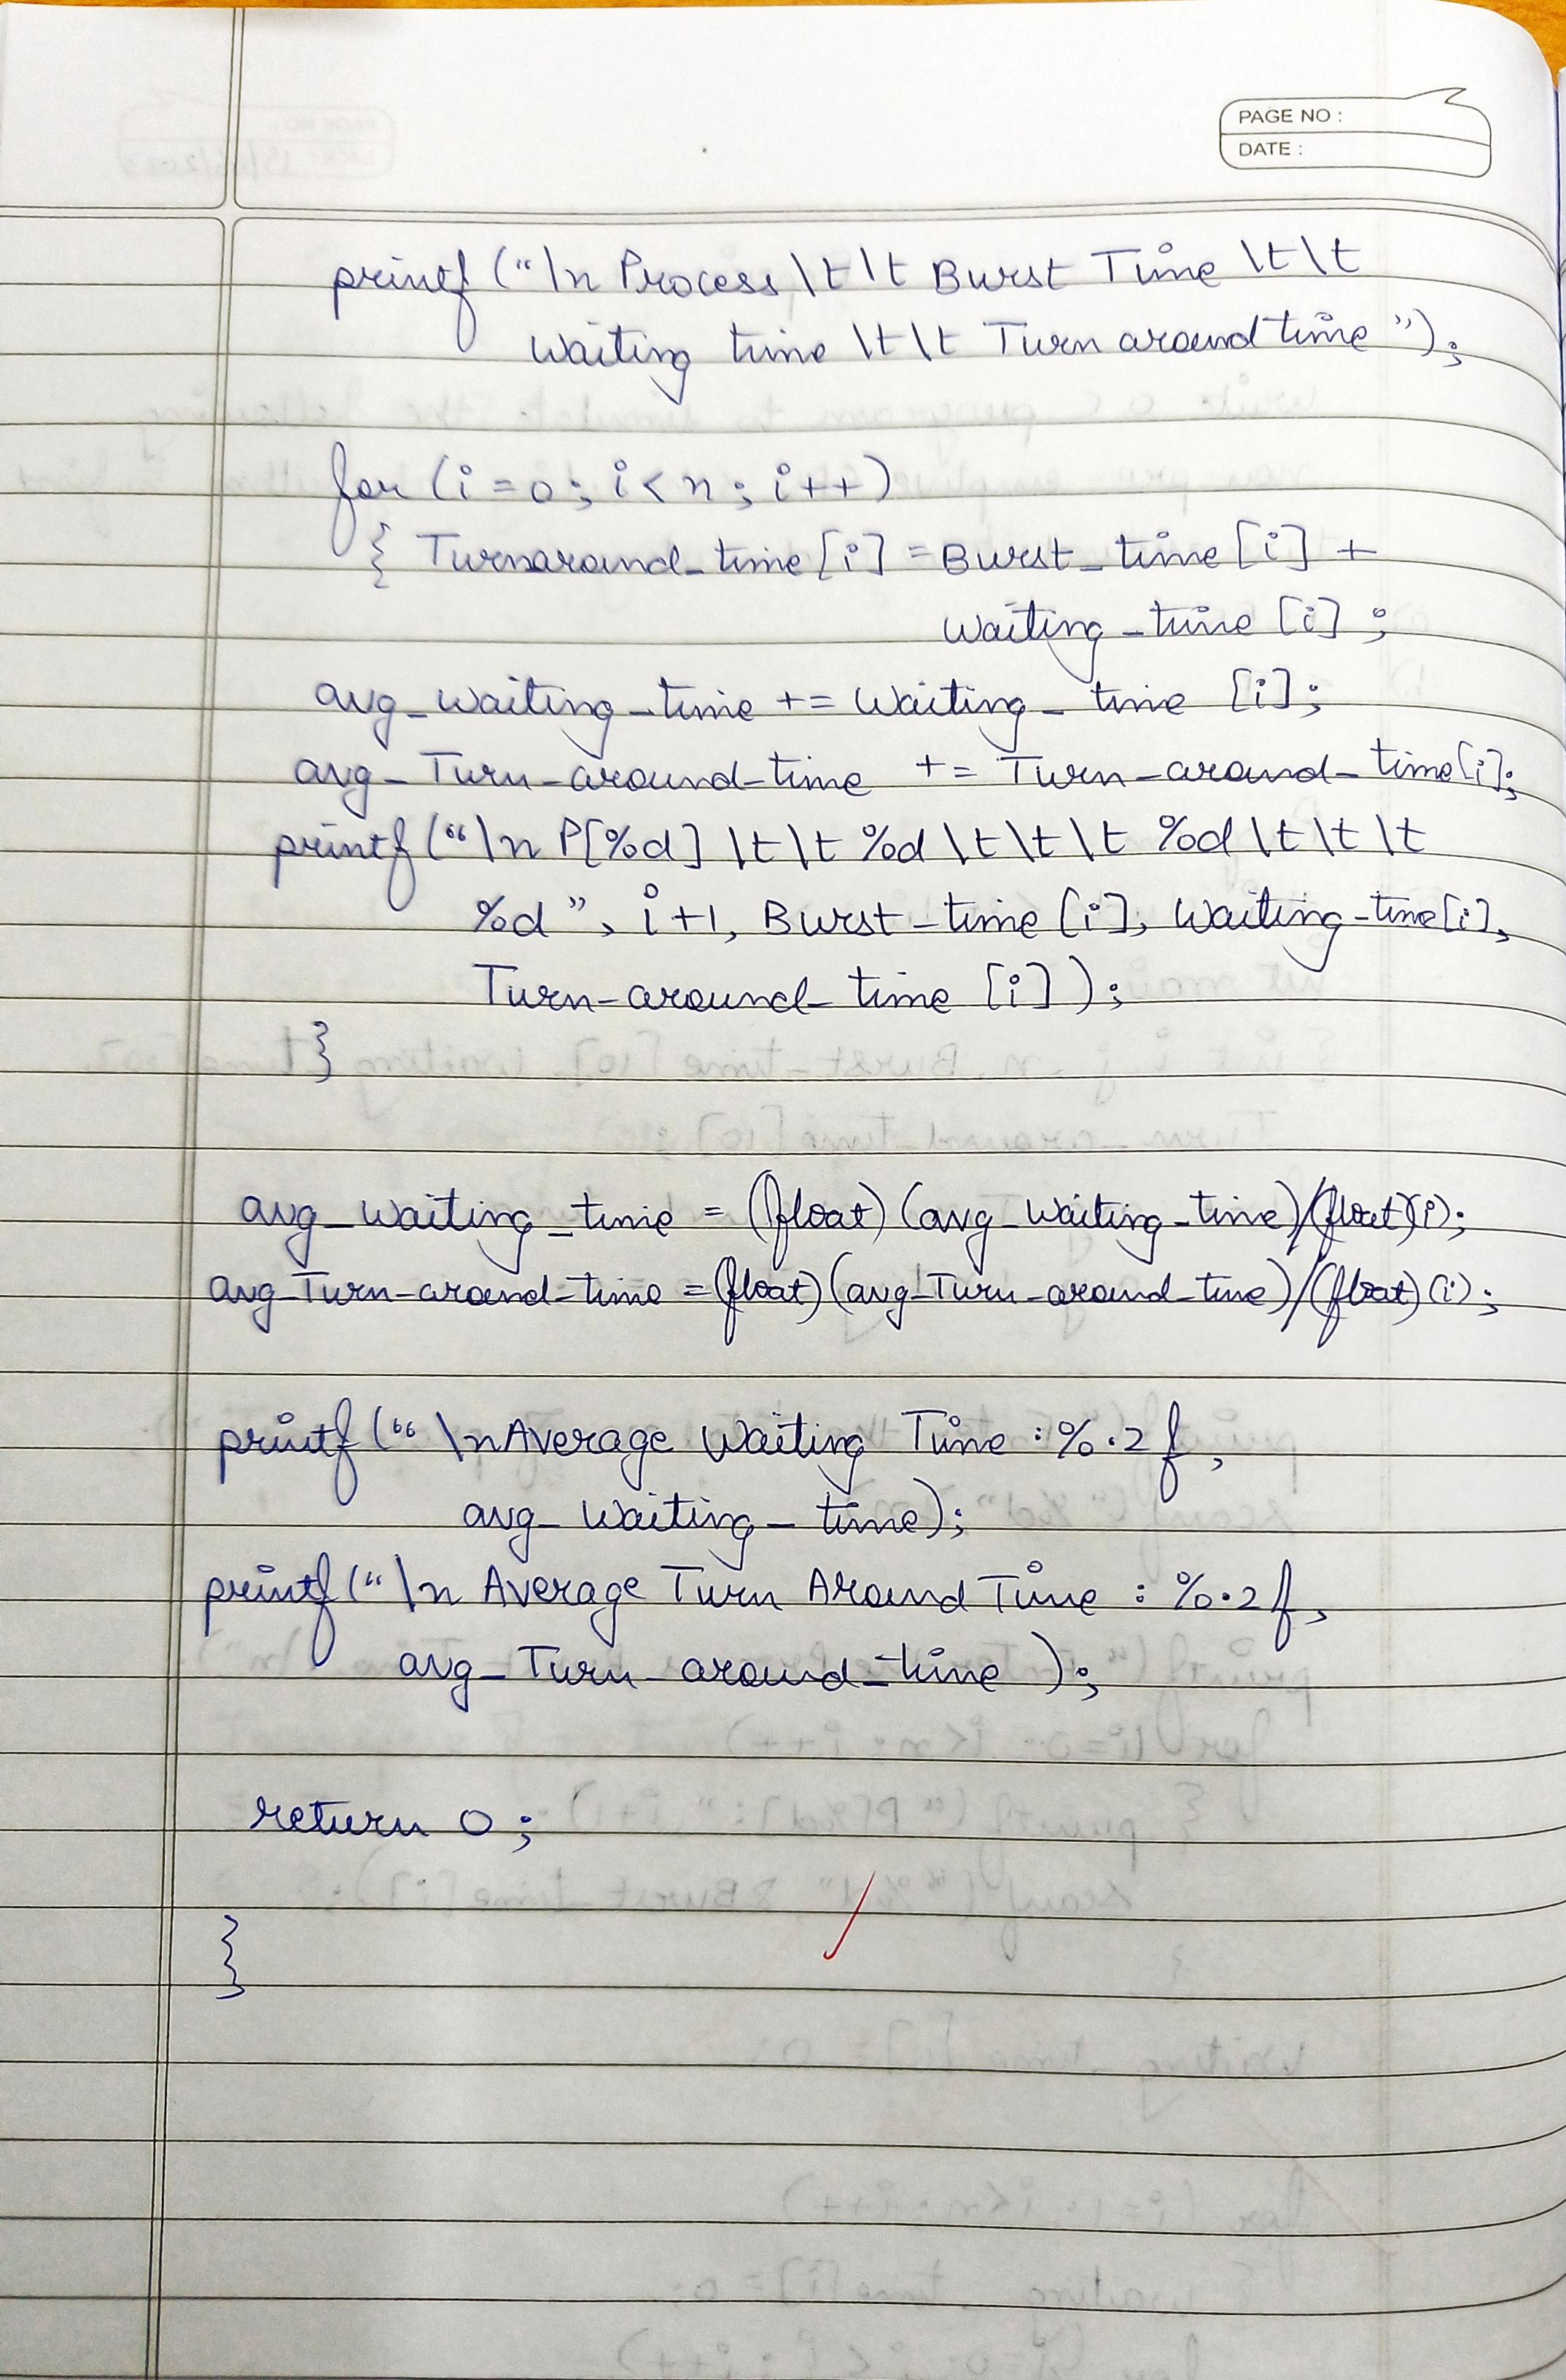 PAGE NO :
DATE :
printf ("\n Process \t\t Burst Time \t\t
Waiting time \t\t Turn around time");
for (i = 0; i < n; i++)
{ Turnaround_time [i] = Burst_time [i] +
Waiting_time [i];
avg_waiting_time += Waiting_time [i];
avg_Turn_around_time += Turn_around_time[i];
printf ("\n P[%d] \t\t %d \t\t\t %d \t\t\t
%d", i+1, Burst_time [i], Waiting_time[i],
Turn_around_time [i]);
}
avg_waiting_time = (float) (avg_Waiting_time)/(float)(i);
avg_Turn_around_time = (float) (avg_Turn_around_time)/(float)(i);
printf (" \nAverage Waiting Time : %.2f,
avg_Waiting_time);
printf ("\n Average Turn Around Time : %.2f,
avg_Turn_around_time );
return 0;
}